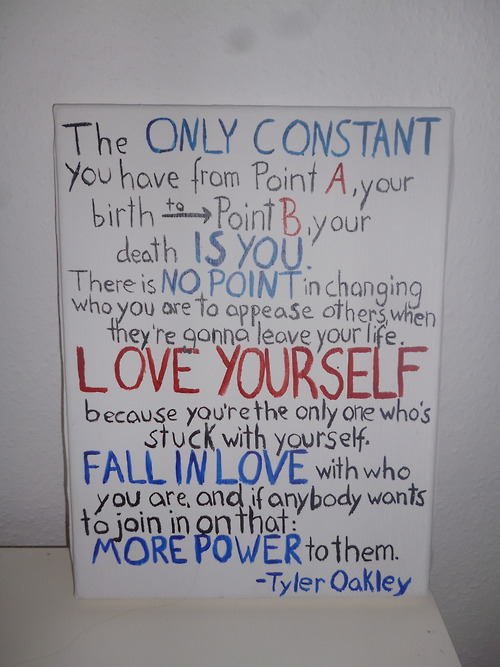 The ONLY CONSTANT
you have from Point A, your
birth to → Point B, your
death IS YOU.
There is NO POINT in changing
who you are to appease others, when
they're gonna leave your life.
LOVE YOURSELF
because you're the only one who's
stuck with yourself.
FALL IN LOVE with who
you are, and if anybody wants
to join in on that:
MORE POWER to them.
-Tyler Oakley